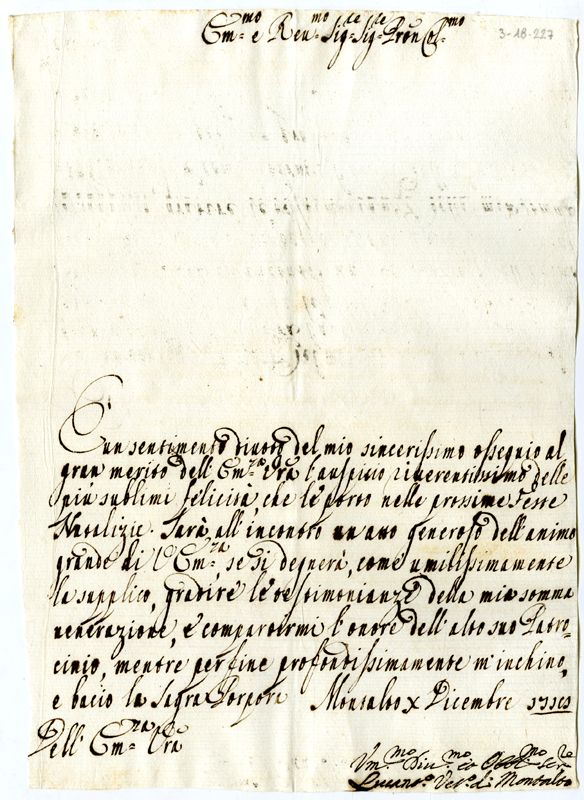 Em.mo e Reu.mo Sig.re Sig.re Pron Col.mo
3-18-227
È un sentimento diuoto del mio sincerissimo ossequio al
gran merito dell' Em.za Vra l'auspicio riuerentissimo delle
più sublimi felicità, che le porto nelle prossime Feste
Natalizie. Sarà all' incontro un atto generoso dell' animo
grande di V. Em.za se si degnerà, come umilissimamente
la supplico, gradire le testimonianze della mia somma
uenerazione, e compartirmi l'onore dell' alto suo Patro-
cinio, mentre per fine profondissimamente m'inchino,
e bacio la Sagra Porpora Montalto X Dicembre
Dell' Em.za Vra
Vm.mo Diu.mo et Obb.mo Se.re
Lucant.o Ves.o di Montalto